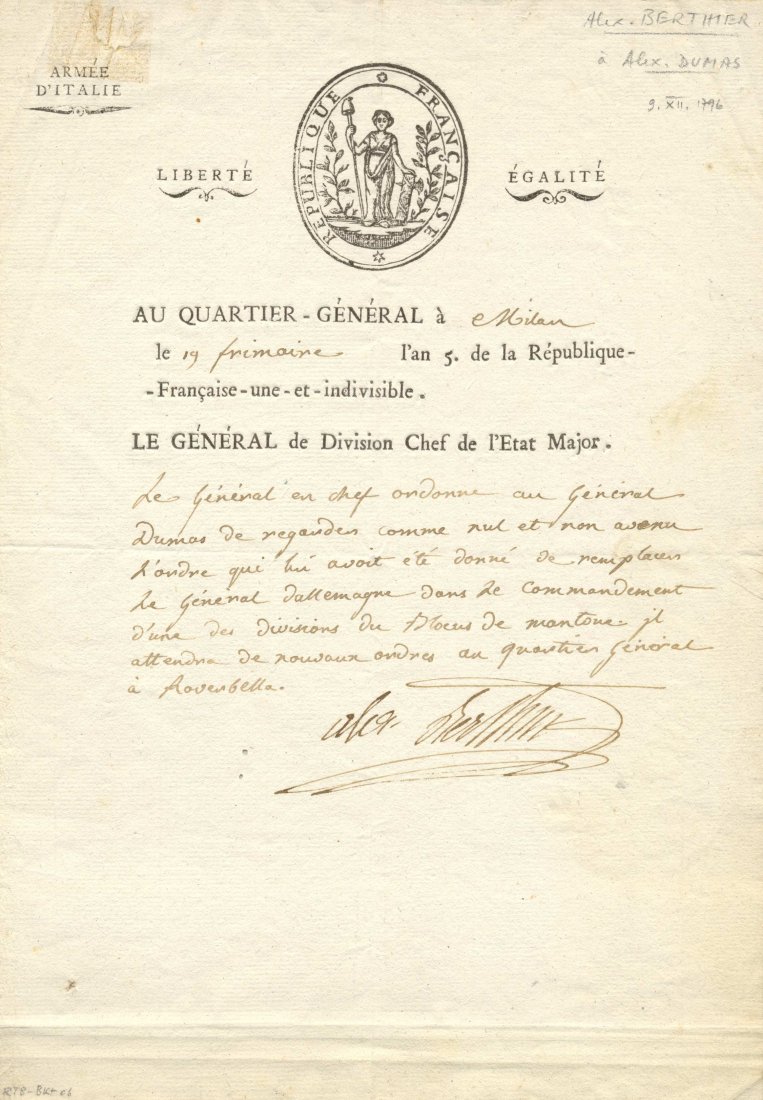 Alex. BERTHIER
à Alex. DUMAS
9. XII. 1796
ARMÉE
D'ITALIE
RÉPUBLIQUE FRANÇAISE
LIBERTÉ
ÉGALITÉ
AU QUARTIER-GÉNÉRAL à Milan
le 19 frimaire l'an 5. de la République-
-Française-une-et-indivisible.
LE GÉNÉRAL de Division Chef de l'Etat Major.
Le Général en chef ordonne au Général
Dumas de regarder comme nul et non avenu
L'ordre qui lui avoit été donné de remplacer
Le Général dallemagne dans Le Commandement
d'une des divisions du Blocus de mantoue jl
attendra de nouvaux ordres au quartier Général
à Roverbella.
alex Berthier